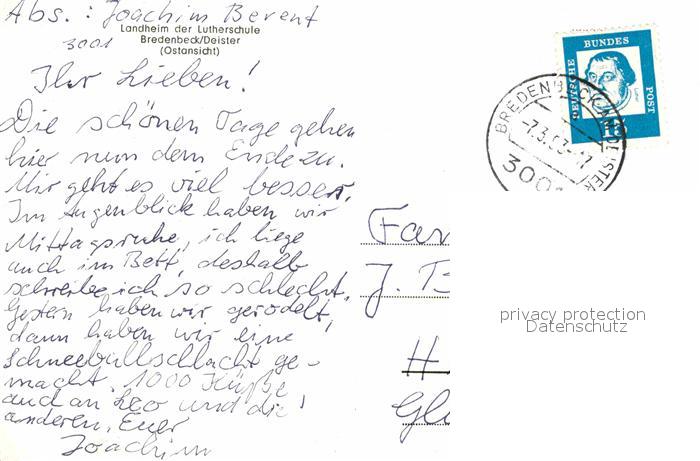 Abs.: Joachim Berent
3001
Landheim der Lutherschule
Bredenbeck/Deister
(Ostansicht)
Ihr Lieben!
Die schönen Tage gehen
hier nun dem Ende zu.
Mir geht es viel besser.
Im Augenblick haben wir
Mittagsruhe, ich liege
auch im Bett, deshalb
schreibe ich so schlecht.
Gestern haben wir gerodelt,
dann haben wir eine
Schneeballschlacht ge-
macht. 1000 Küße
auch an Leo und die
anderen, Euer
Joachim
DEUTSCHE BUNDES POST
BREDENBECK
-7.3.63-17
300
Fa
J.
H
Gl
privacy protection
Datenschutz